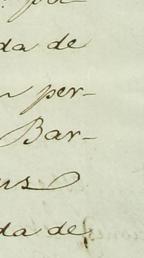 da de
per-
Bar-
us
da de